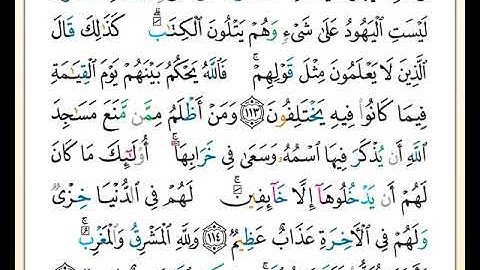 لَيْسَتِ ٱلْيَهُودُ عَلَىٰ شَىْءٍ وَهُمْ يَتْلُونَ ٱلْكِتَٰبَ ۗ كَذَٰلِكَ قَالَ
ٱلَّذِينَ لَا يَعْلَمُونَ مِثْلَ قَوْلِهِمْ ۚ فَٱللَّهُ يَحْكُمُ بَيْنَهُمْ يَوْمَ ٱلْقِيَٰمَةِ
فِيمَا كَانُوا۟ فِيهِ يَخْتَلِفُونَ ١١٣ وَمَنْ أَظْلَمُ مِمَّن مَّنَعَ مَسَٰجِدَ
ٱللَّهِ أَن يُذْكَرَ فِيهَا ٱسْمُهُۥ وَسَعَىٰ فِى خَرَابِهَآ ۚ أُو۟لَٰٓئِكَ مَا كَانَ
لَهُمْ أَن يَدْخُلُوهَآ إِلَّا خَآئِفِينَ ۚ لَهُمْ فِى ٱلدُّنْيَا خِزْىٌ
وَلَهُمْ فِى ٱلْءَاخِرَةِ عَذَابٌ عَظِيمٌ ١١٤ وَلِلَّهِ ٱلْمَشْرِقُ وَٱلْمَغْرِبُ ۚ